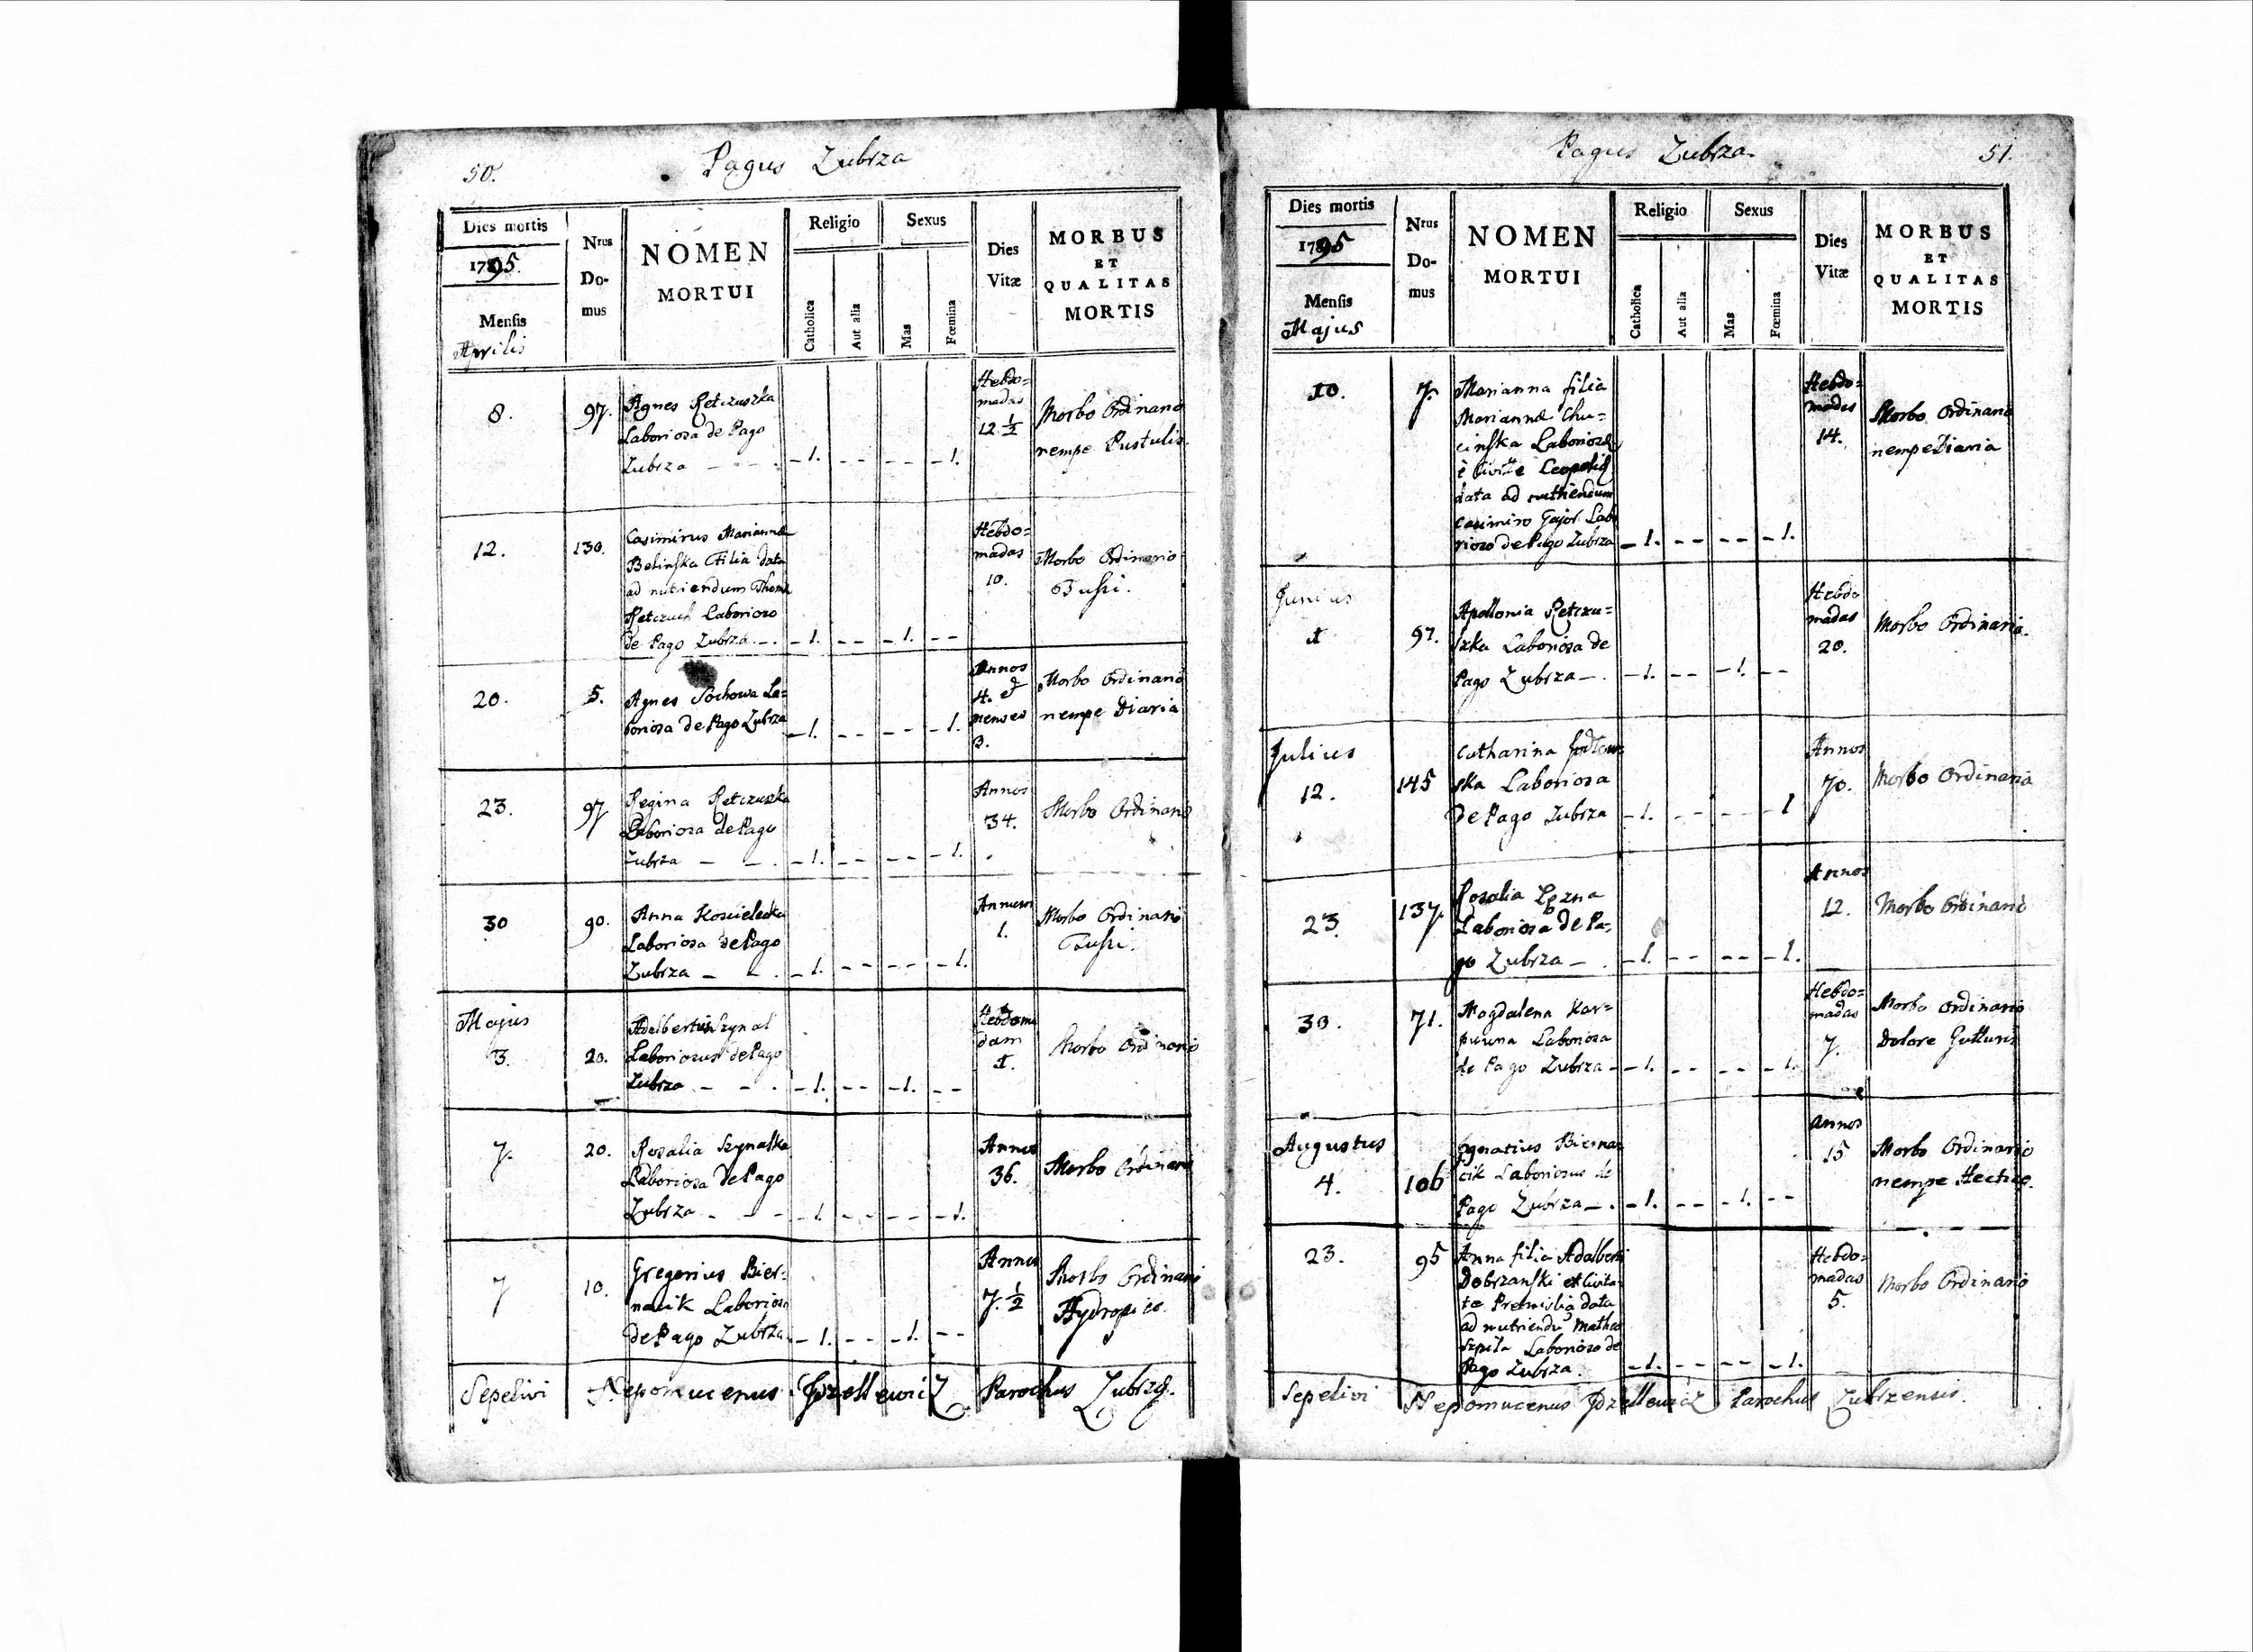 50.
Pagus Zubrza
Dies mortis
1795.
Mensis
Aprilis
Nrus
Do-
mus
NOMEN
MORTUI
Religio
Catholica
Aut alia
Sexus
Mas
Fœmina
Dies
Vitæ
MORBUS
ET
QUALITAS
MORTIS
8.
97.
Agnes Retczuszka
Laboriosa de Pago
Zubrza - - - .
- 1. - - - - - 1.
Hebdo=
madas
12 ½
Morbo Ordinario
nempe Pustulis.
12.
130.
Casimirus Mariannæ
Belinska Filia data
ad nutriendum Thomæ
Retczuch Laborioso
de Pago Zubrza - .
- 1. - - - 1. - -
Hebdo=
madas
10.
Morbo Ordinario
Tussi.
20.
5.
Agnes Sochowa La=
boriosa de Pago Zubrza
- 1. - - - - - 1.
Annos
4. et
menses
3.
Morbo Ordinario
nempe Diaria
23.
97
Regina Retczuszka
Laboriosa de Pago
Zubrza - - .
- 1. - - - - - 1.
Annos
34.
Morbo Ordinario
30
90.
Anna Koscielecka
Laboriosa de Pago
Zubrza - - .
- 1. - - - - - 1.
Annum
1.
Morbo Ordinario
Tussi.
Majus
3.
20.
Adalbertus Szynal
Laboriosus de Pago
Zubrza - - .
- 1. - - - 1. - -
Hebdoma
dam
1.
Morbo Ordinario
7.
20.
Rosalia Szynalka
Laboriosa de Pago
Zubrza - - -
- 1. - - - - - 1.
Annos
36.
Morbo Ordinario
7
10.
Gregorius Bier=
nacik Laborioso
de Pago Zubrza
- 1. - - - 1. - -
Annos
7. ½
Morbo Ordinario
Hydropico.
Sepelivi Nepomucenus Parochus Zubrzæ.
Pagus Zubrza.
51.
Dies mortis
1795
Mensis
Majus
Nrus
Do-
mus
NOMEN
MORTUI
Religio
Catholica
Aut alia
Sexus
Mas
Fœmina
Dies
Vitæ
MORBUS
ET
QUALITAS
MORTIS
10.
7.
Marianna filia
Mariannæ Chu=
cinska Laboriosæ
è Civitte Leopolis
data ad nuthiendum
Casimiro Gajor Labo
rioso de Pago Zubrza
- 1. - - - - - 1.
Hebdo=
madas
14.
Morbo Ordinario
nempe Diaria
Junius
1
97.
Apollonia Retczu=
szka Laboriosa de
Pago Zubrza - .
- 1. - - - 1. - -
Hebdo
madas
20.
Morbo Ordinario.
Julius
12.
145
Catharina
ska Laboriosa
de Pago Zubrza
- 1. - - - - - 1
Annos
70.
Morbo Ordinario
23.
137.
Rosalia
Laboriosa de Pa-
go Zubrza - .
- 1. - - - - - 1.
Annos
12.
Morbo Ordinario
30.
71.
Magdalena Kar=
Laboriosa
de Pago Zubrza -
- 1. - - - - - 1.
Hebdo=
madas
7.
Morbo Ordinario
Dolore Gutturis
Augustus
4.
106
Ignatius Bierna
cik Laboriosus de
Pago Zubrza - .
- 1. - - - 1. - -
Annos
15
Morbo Ordinario
nempe Hectico.
23.
95
Anna filia Adalberti
Dobrzanski et Civita-
te Premislia data
ad nutriendũ Mathæo
Szpila Laborioso de
Pago Zubrza.
- 1. - - - - - 1.
Hebdo=
madas
5.
Morbo Ordinario
Sepelivi Nepomucenus Parochus Zubrzensis.